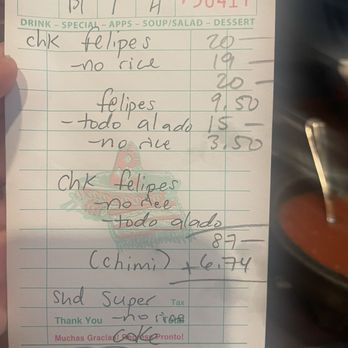 DRINK - SPECIAL - APPS - SOUP/SALAD - DESSERT
chk felipes 20—
-no rice 19—
20—
felipes 9.50
-todo alado 15—
-no rice 3.50
chk felipes
-no rice
-todo alado
87—
(chimi) +6.74
shd super Tax
Thank You -no rice
Muchas Gracias! coke Pronto!